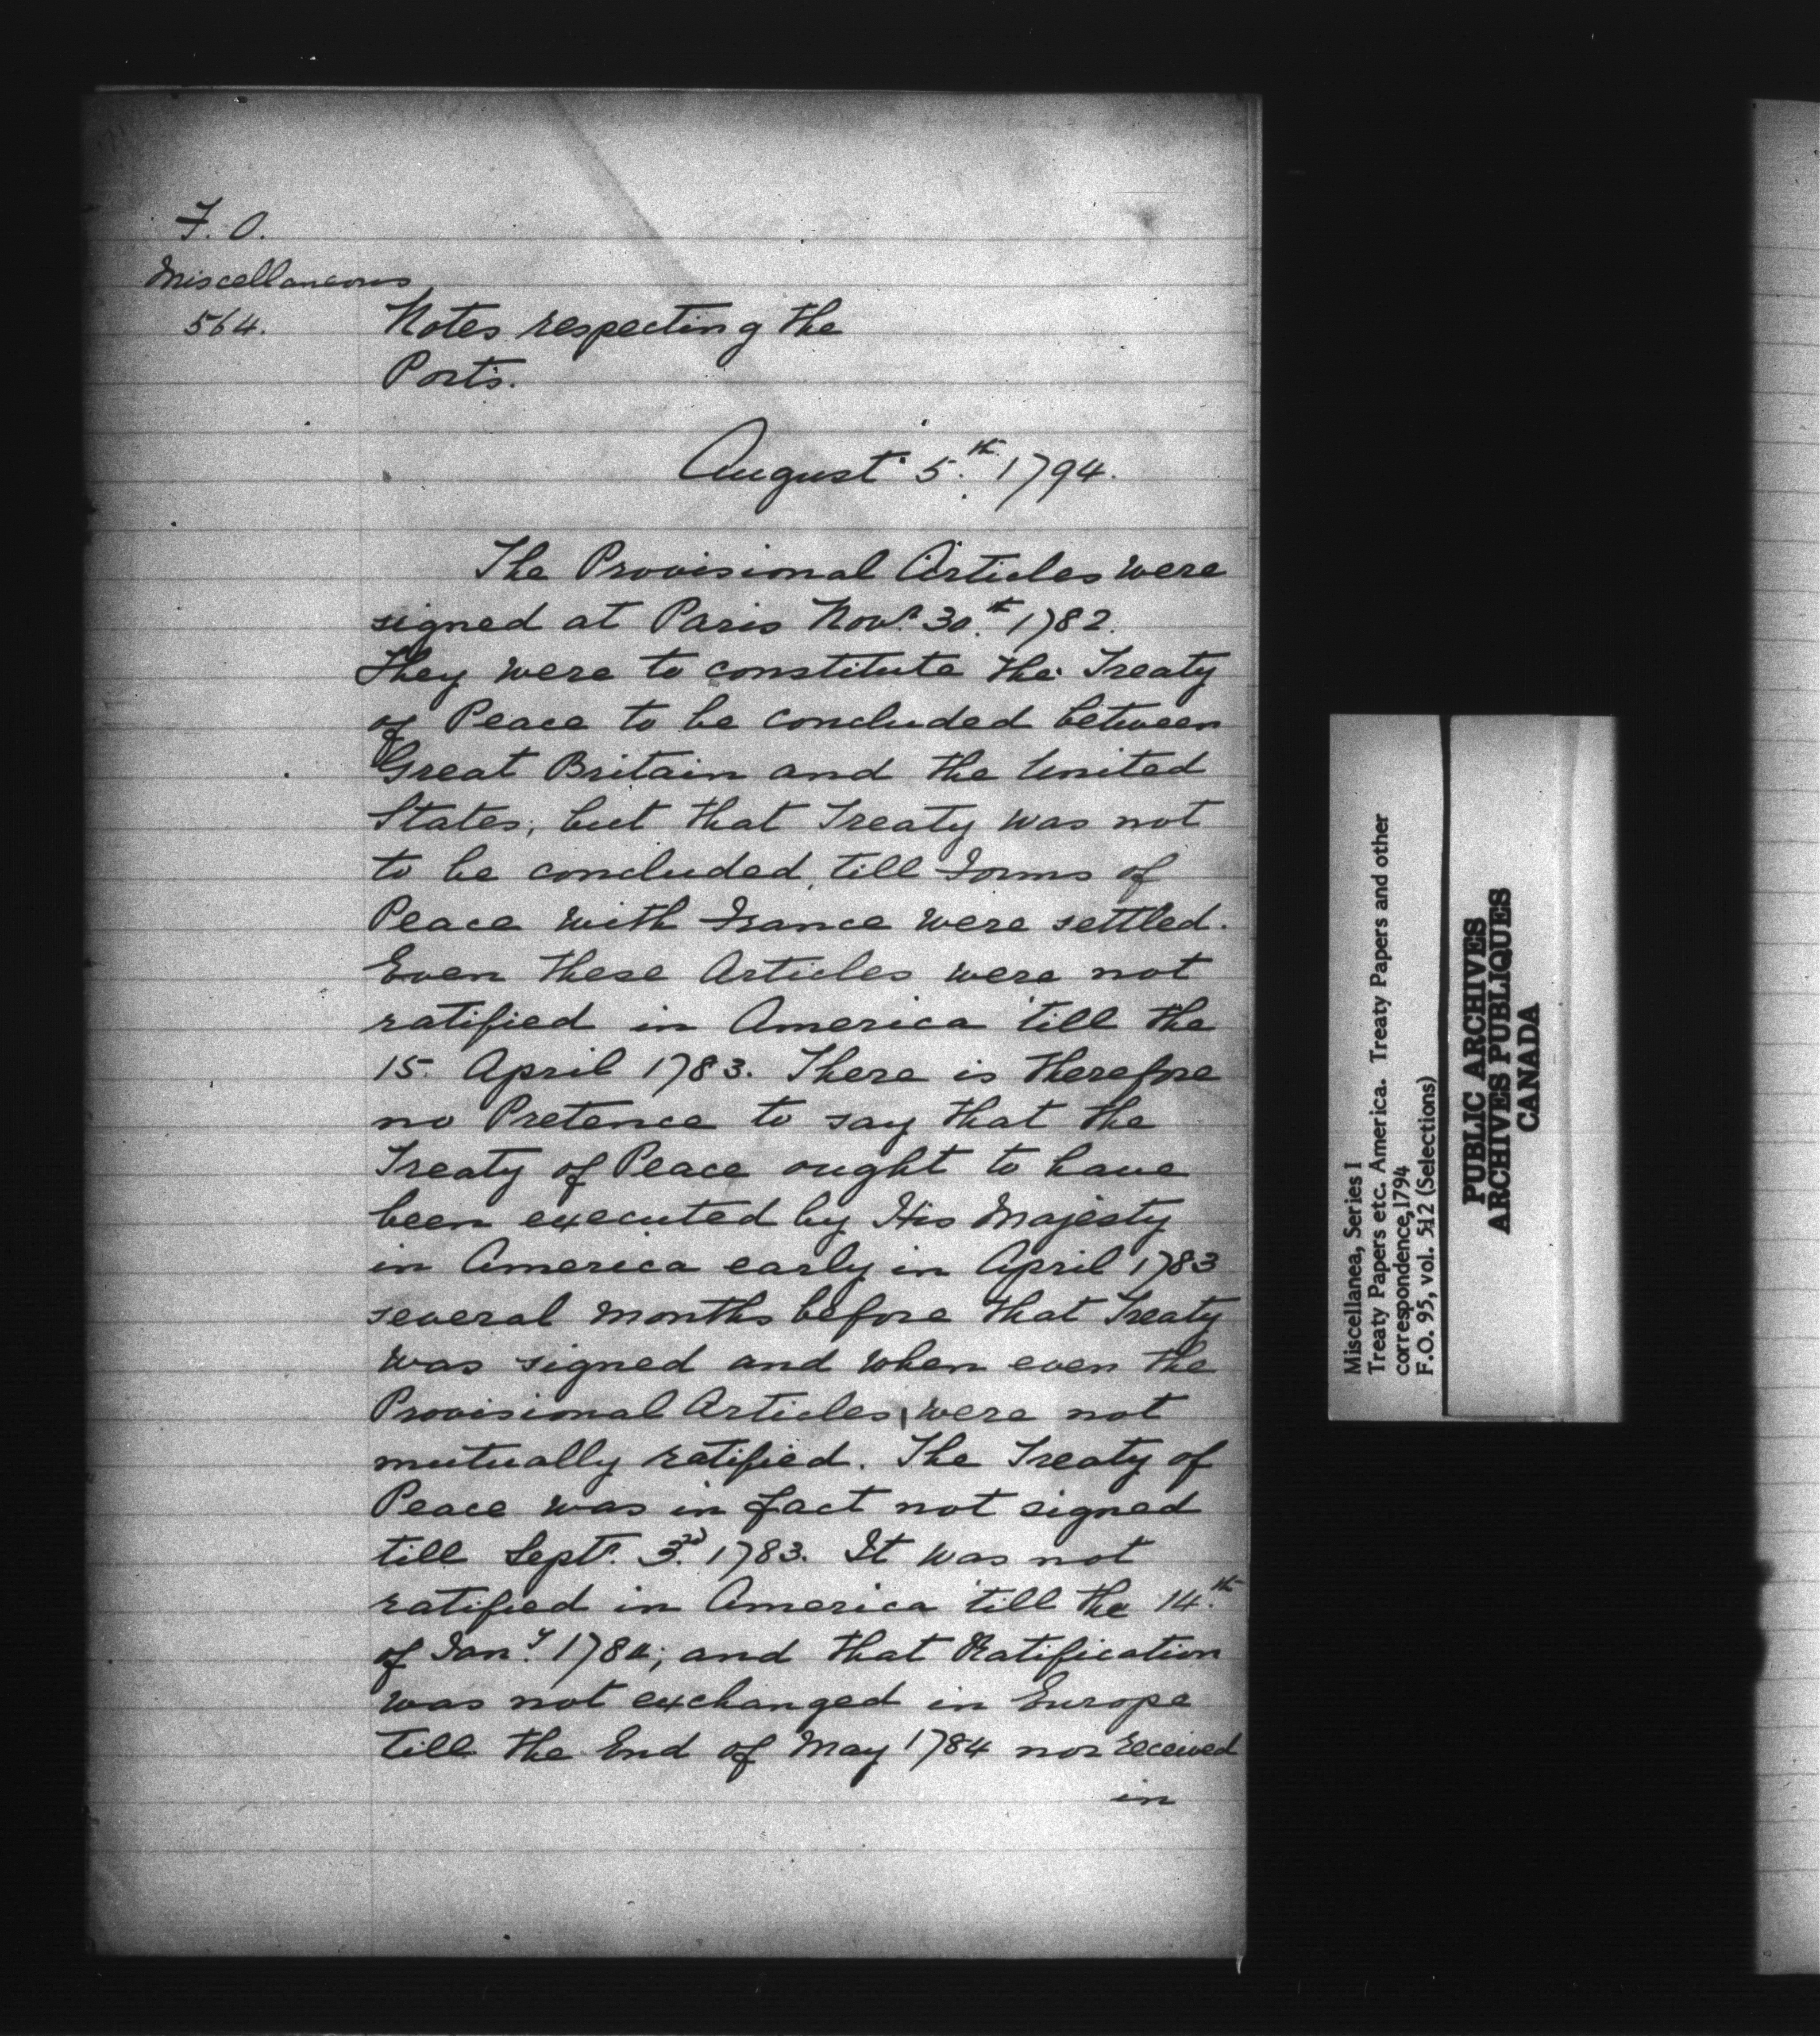 F. O.
Miscellaneous
564.
Notes respecting the
Posts.
August 5.th 1794.
The Provisional Articles were
signed at Paris Novr. 30.th 1782.
They were to constitute the Treaty
of Peace to be concluded between
Great Britain and the United
States; but that Treaty was not
to be concluded, till Terms of
Peace with France were settled.
Even these Articles were not
ratified in America 'till the
15. April 1783. There is therefore
no Pretence to say that the
Treaty of Peace ought to have
been executed by His Majesty
in America early in April 1783
several months before that Treaty
was signed and when even the
Provisional Articles, were not
mutually ratified. The Treaty of
Peace was in fact not signed
till Septr. 3.rd 1783. It was not
ratified in America 'till the 14.th
of Jan.y 1784; and that Ratification
was not exchanged in Europe
till the End of May 1784 nor received
in
Miscellanea, Series I
Treaty Papers etc. America. Treaty Papers and other
correspondence, 1794
F.O. 95, vol. 512 (Selections)
PUBLIC ARCHIVES
ARCHIVES PUBLIQUES
CANADA